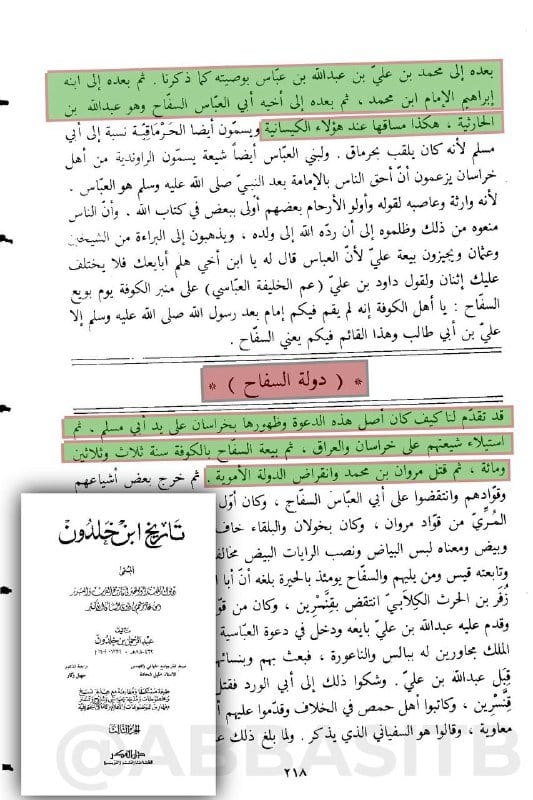 بعده إلى محمد بن عليّ بن عبدالله بن عبّاس بوصيته كما ذكرنا . ثم بعده إلى ابنه
إبراهيم الإمام ابن محمد ، ثم بعده إلى أخيه أبي العباس السفاح وهو عبدالله بن
الحارثية ، هكذا مساقها عند هؤلاء الكيسانية ويسمّون أيضا الحَرْماقِيّة نسبة إلى أبي
مسلم لأنه كان يلقب بحرماق . ولبني العباس أيضاً شيعة يسمّون الراوندية من أهل
خراسان يزعمون أنّ أحق الناس بالإمامة بعد النبيّ صلى الله عليه وسلم هو العباس .
لأنه وارثة وعاصبه لقوله وأولو الأرحام بعضهم أولى ببعض في كتاب الله . وأنّ الناس
منعوه من ذلك وظلموه إلى أن ردّه الله إلى ولده ، ويذهبون إلى البراءة من الشيخين
وعثمان ويجيزون بيعة عليّ لأنّ العباس قال له يا ابن أخي هلم أبايعك فلا يختلف
عليك إثنان ولقول داود بن عليّ (عم الخليفة العبّاسي) على منبر الكوفة يوم بويع
السفّاح : يا أهل الكوفة إنه لم يقم فيكم إمام بعد رسول الله صلى الله عليه وسلم إلا
عليّ بن أبي طالب وهذا القائم فيكم يعني السفّاح .
* ( دولة السفاح ) *
قد تقدّم لنا كيف كان أصل هذه الدعوة وظهورها بخراسان على يد أبي مسلم ، ثم
استيلاء شيعتهم على خراسان والعراق ، ثم بيعة السفّاح بالكوفة سنة ثلاث وثلاثين
ومائة ، ثم قتل مروان بن محمد وانقراض الدولة الأموية . ثم خرج بعض أشياعهم
وقوّادهم وانتقضوا على أبي العبّاس السفّاح ، وكان أوّل
المُرِّيّ من قوّاد مروان ، وكان بخولان والبلقاء خاف
وبيض ومعناه لبس البياض ونصب الرايات البيض مخالف
وتابعته قيس ومن يليهم والسفّاح يومئذ بالحيرة بلغه أنّ أبا ا
زُفَر بن الحرث الكِلابيّ انتقض بقِنَّسْرين ، وكان من قو
وقدم عليه عبدالله بن عليّ بايعه ودخل في دعوة العبّاسية
الملك مجاورين له ببالس والناعورة ، فبعث بهم وبنسائه
قِبَل عبدالله بن عليّ . وشكوا ذلك إلى أبي الورد فقتل
قِنَّسْرين ، وكاتبوا أهل حمص في الخلاف وقدّموا عليهم أ
معاوية ، وقالوا هو السفياني الذي يذكر . ولما بلغ ذلك عبد
٢١٨
تاريخ ابن خلدون
تأليف
عبد الرحمن بن خلدون
الجزء الثالث
دار الفكر
@ABBASITB